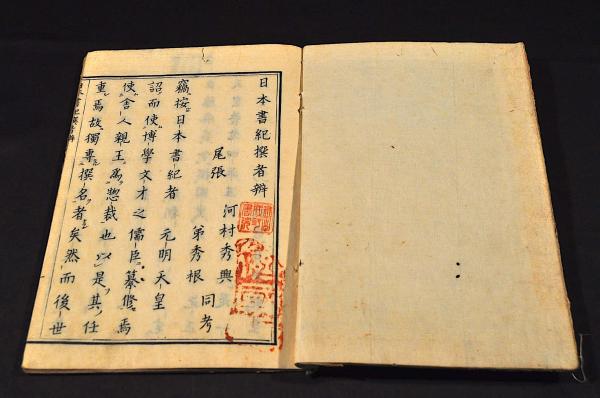 日本書紀撰者辨
尾張 河村秀興
第秀根 同考
竊按日本書紀者 元明天皇
詔而使博学文才之儒臣纂修焉
使舎人親王為惣裁也以是其任
重焉故獨專撰名者矣然而後世